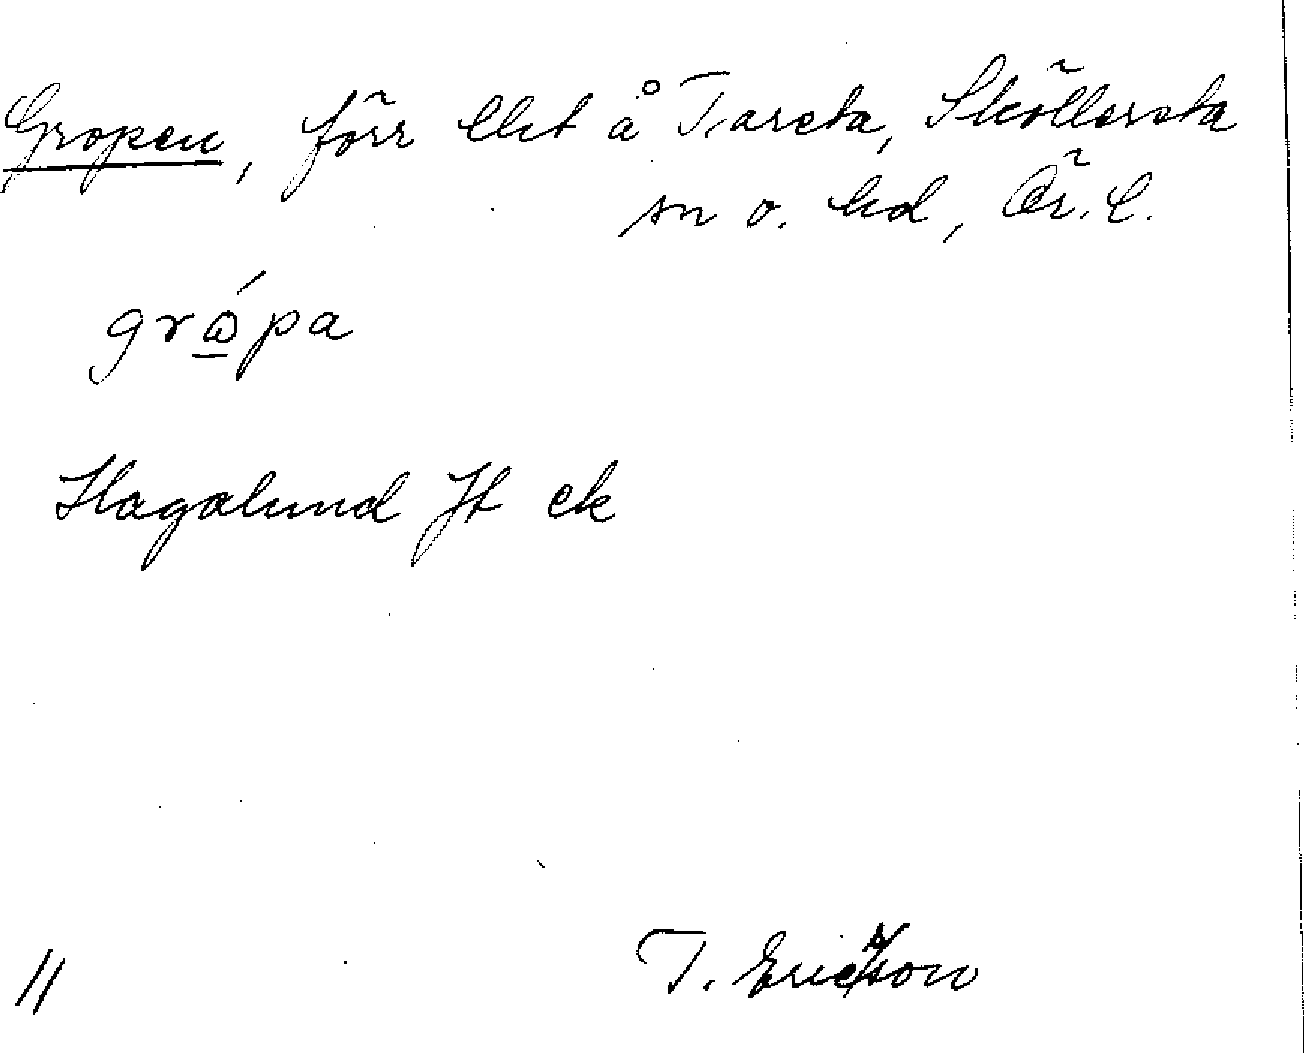 Gropen, förr lht å Tarsta, Sköllersta
sn o. hd, Ör. l.
grώ̲pa
Hagalund Jt ek
T. Ericsson